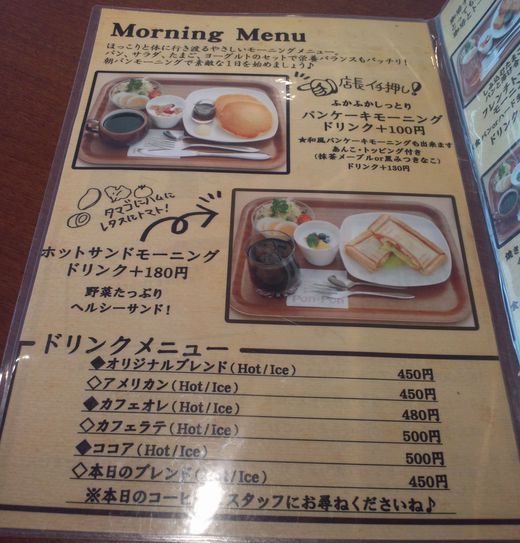 Morning Menu
ほっこりと体に行き渡るやさしいモーニングメニュー。
パン、サラダ、たまご、ヨーグルトのセットで栄養バランスもバッチリ!
朝パンモーニングで素敵な1日を始めましょう♪
店長イチ押し!
ふかふかしっとり
パンケーキモーニング
ドリンク+100円
★和風パンケーキモーニングも出来ます
あんこ・トッピング付き
(抹茶メープルor黒みつきなこ)
ドリンク+130円
タマゴにハムに
レタスにトマト!
ホットサンドモーニング
ドリンク+180円
野菜たっぷり
ヘルシーサンド!
Pon-Pon
ドリンクメニュー
◆オリジナルブレンド(Hot/Ice) 450円
◇アメリカン(Hot/Ice) 450円
◆カフェオレ(Hot/Ice) 480円
◇カフェラテ(Hot/Ice) 500円
◆ココア(Hot/Ice) 500円
◇本日のブレンド(Hot/Ice) 450円
※本日のコーヒ スタッフにお尋ねくださいね♪